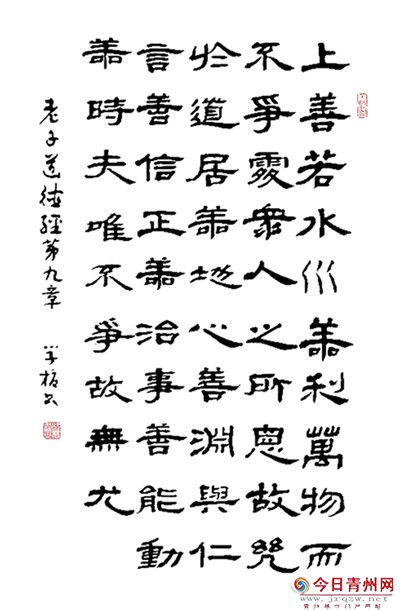 上善若水水善利萬物而
不爭處衆人之所惡故幾
於道居善地心善淵與仁
言善信正善治事善能動
善時夫唯不爭故無尤
老子道德經第九章
今日青州网
www.jrqzw.net